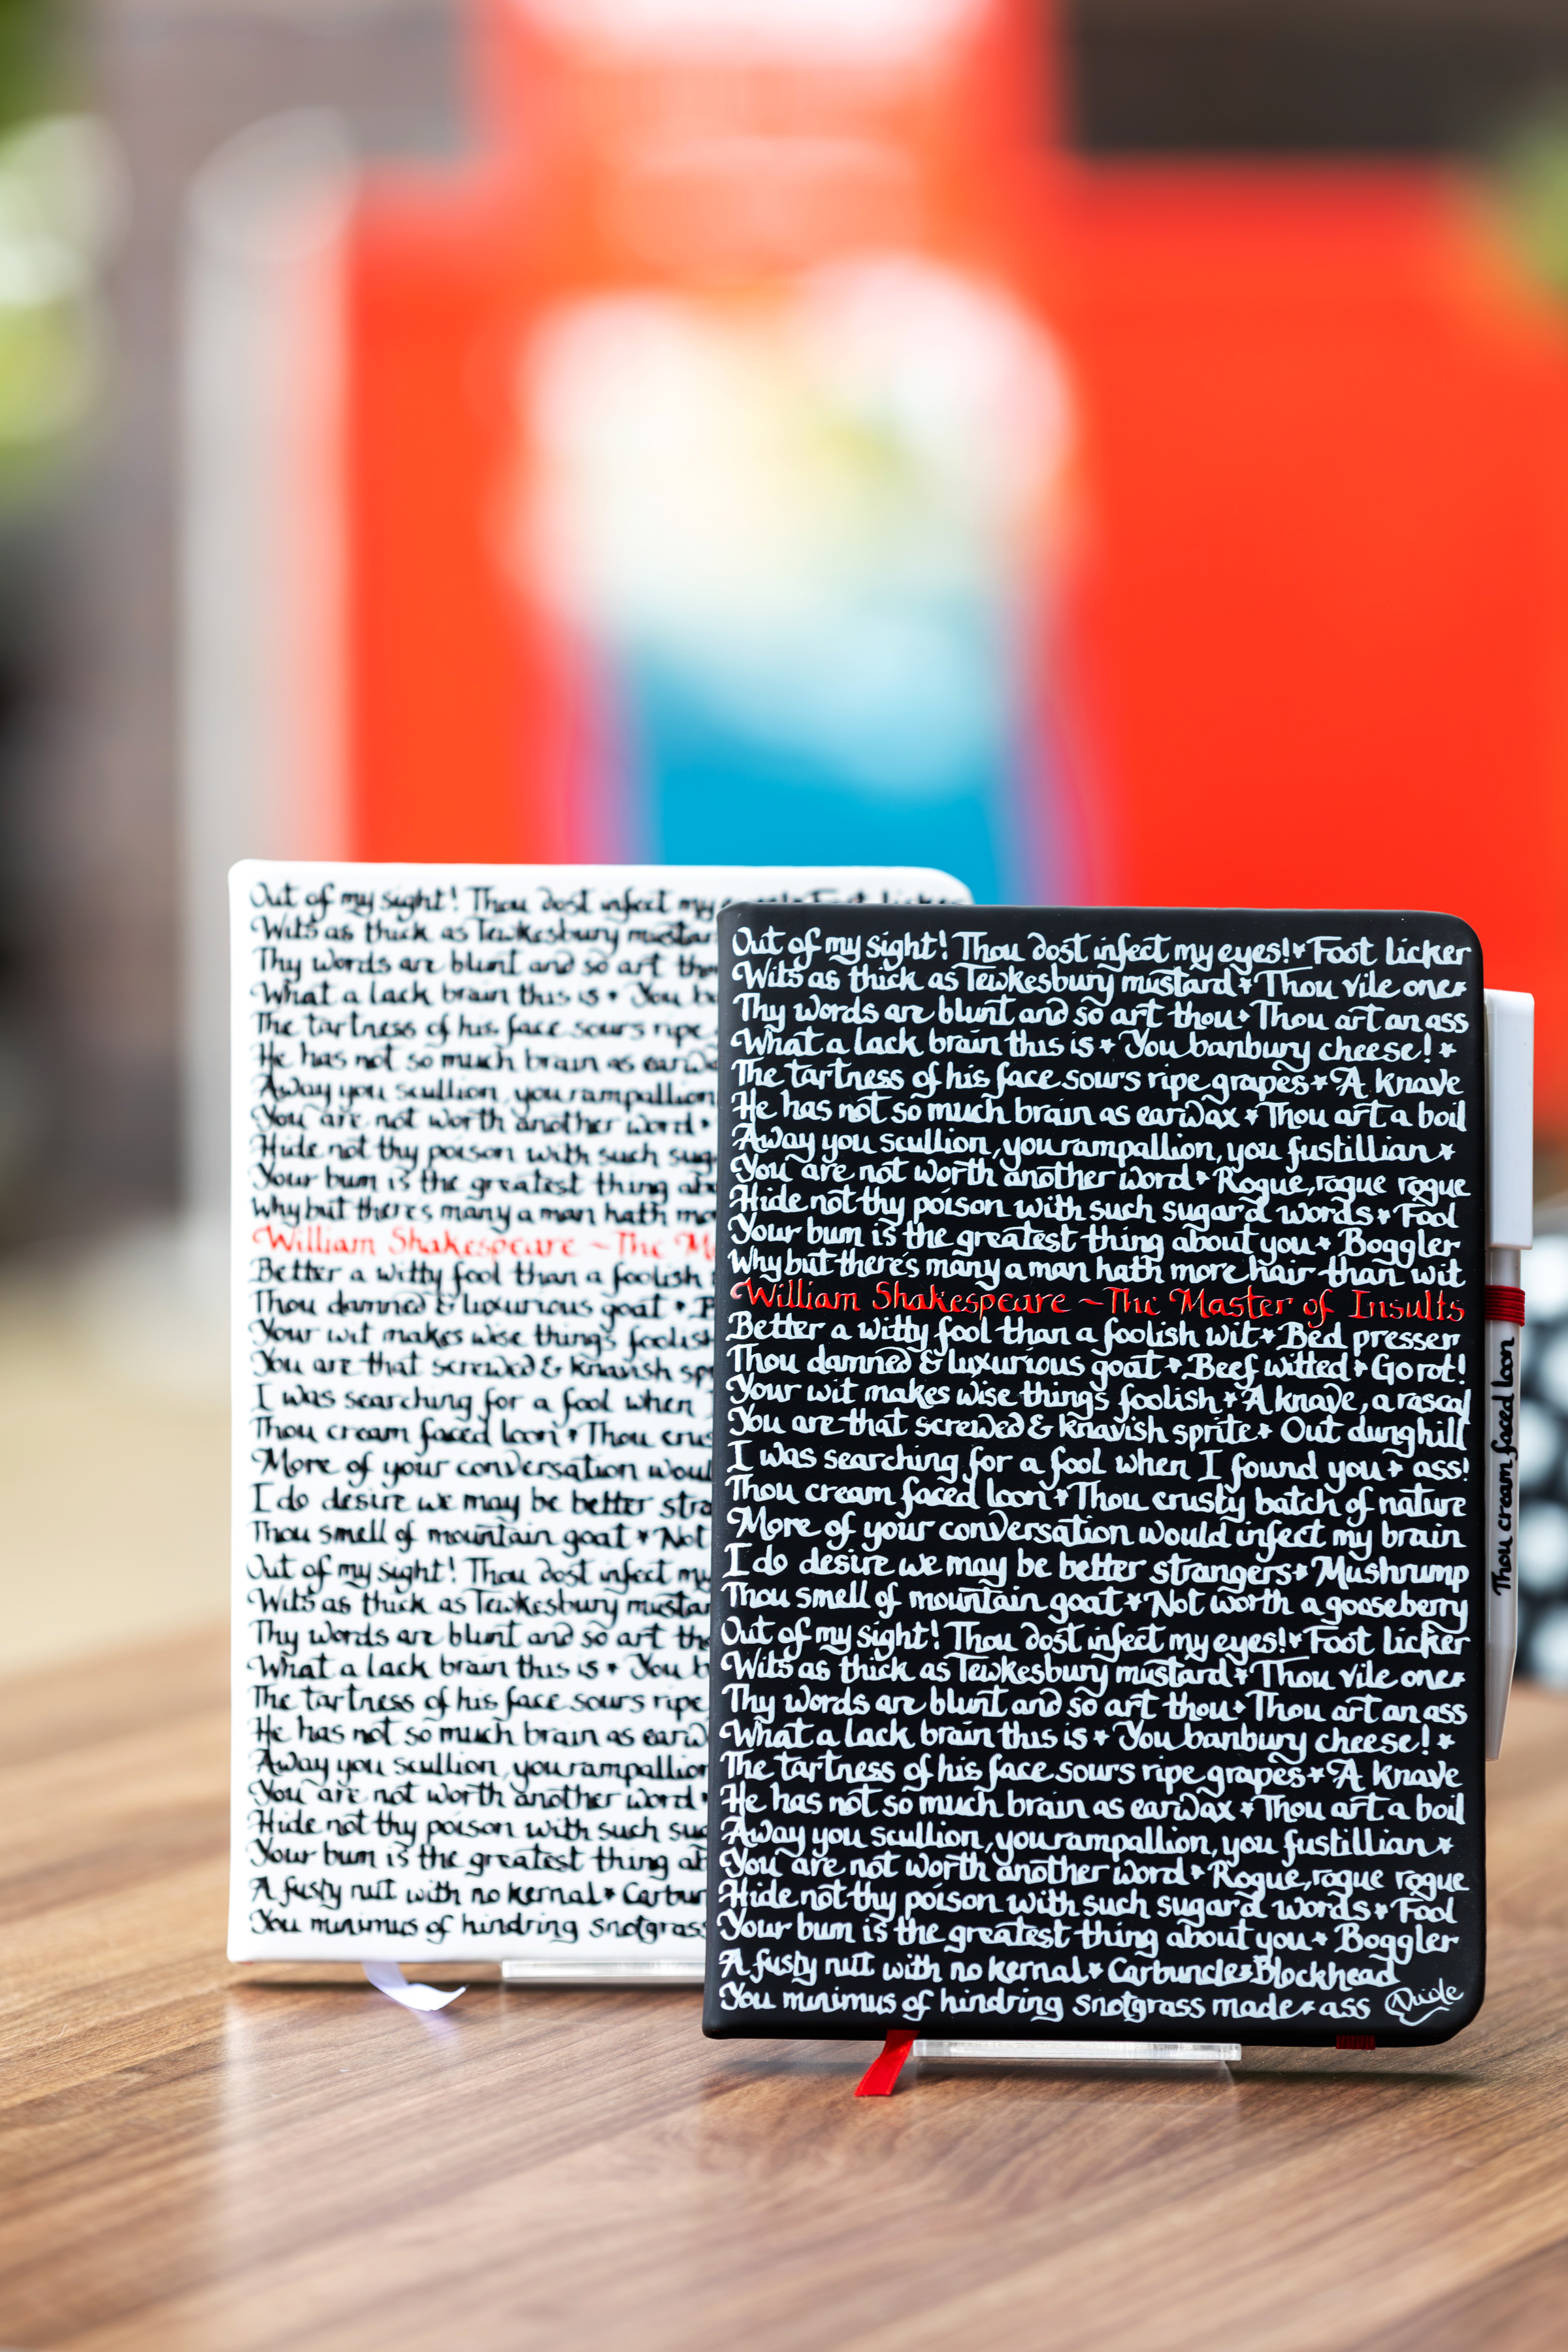 Out of my sight! Thou dost infect my
Wits as thick as Tewkesbury mustar
Thy words are blunt and so art tho
What a lack brain this is * You b
The tartness of his face sours ripe
He has not so much brain as earw
Away you scullion, you rampallion
You are not worth another word *
Hide not thy poison with such sug
Your bum is the greatest thing ab
Why but there's many a man hath mo
William Shakespeare ~ The M
Better a witty fool than a foolish
Thou damned & luxurious goat * B
Your wit makes wise things foolish
You are that screwed & knavish sp
I was searching for a fool when
Thou cream faced loon * Thou crus
More of your conversation woul
I do desire we may be better stra
Thou smell of mountain goat * Not
Out of my sight! Thou dost infect my
Wits as thick as Tewkesbury mustar
Thy words are blunt and so art tho
What a lack brain this is * You b
The tartness of his face sours ripe
He has not so much brain as earw
Away you scullion, you rampallion
You are not worth another word *
Hide not thy poison with such sug
Your bum is the greatest thing ab
A fusty nut with no kernal * Carbun
You minimus of hindring snotgrass
Out of my sight! Thou dost infect my eyes! * Foot licker
Wits as thick as Tewkesbury mustard * Thou vile one *
Thy words are blunt and so art thou * Thou art an ass
What a lack brain this is * You banbury cheese! *
The tartness of his face sours ripe grapes * A knave
He has not so much brain as earwax * Thou art a boil
Away you scullion, you rampallion, you fustillian *
You are not worth another word * Rogue, rogue rogue
Hide not thy poison with such sugard words * Fool
Your bum is the greatest thing about you * Boggler
Why but there's many a man hath more hair than wit
William Shakespeare ~ The Master of Insults
Better a witty fool than a foolish wit * Bed presser
Thou damned & luxurious goat * Beef witted * Go rot!
Your wit makes wise things foolish * A knave, a rascal
You are that screwed & knavish sprite * Out dunghill
I was searching for a fool when I found you * ass!
Thou cream faced loon * Thou crusty batch of nature
More of your conversation would infect my brain
I do desire we may be better strangers * Mushrump
Thou smell of mountain goat * Not worth a gooseberry
Out of my sight! Thou dost infect my eyes! * Foot licker
Wits as thick as Tewkesbury mustard * Thou vile one *
Thy words are blunt and so art thou * Thou art an ass
What a lack brain this is * You banbury cheese! *
The tartness of his face sours ripe grapes * A knave
He has not so much brain as earwax * Thou art a boil
Away you scullion, you rampallion, you fustillian *
You are not worth another word * Rogue, rogue rogue
Hide not thy poison with such sugard words * Fool
Your bum is the greatest thing about you * Boggler
A fusty nut with no kernal * Carbuncle * Blockhead
You minimus of hindring snotgrass made * ass
Thou cream faced loon